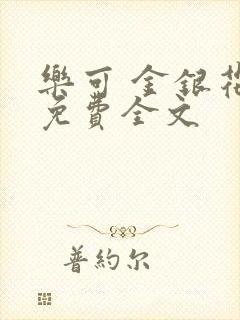 樂可 金銀花
免費全文
普約尔